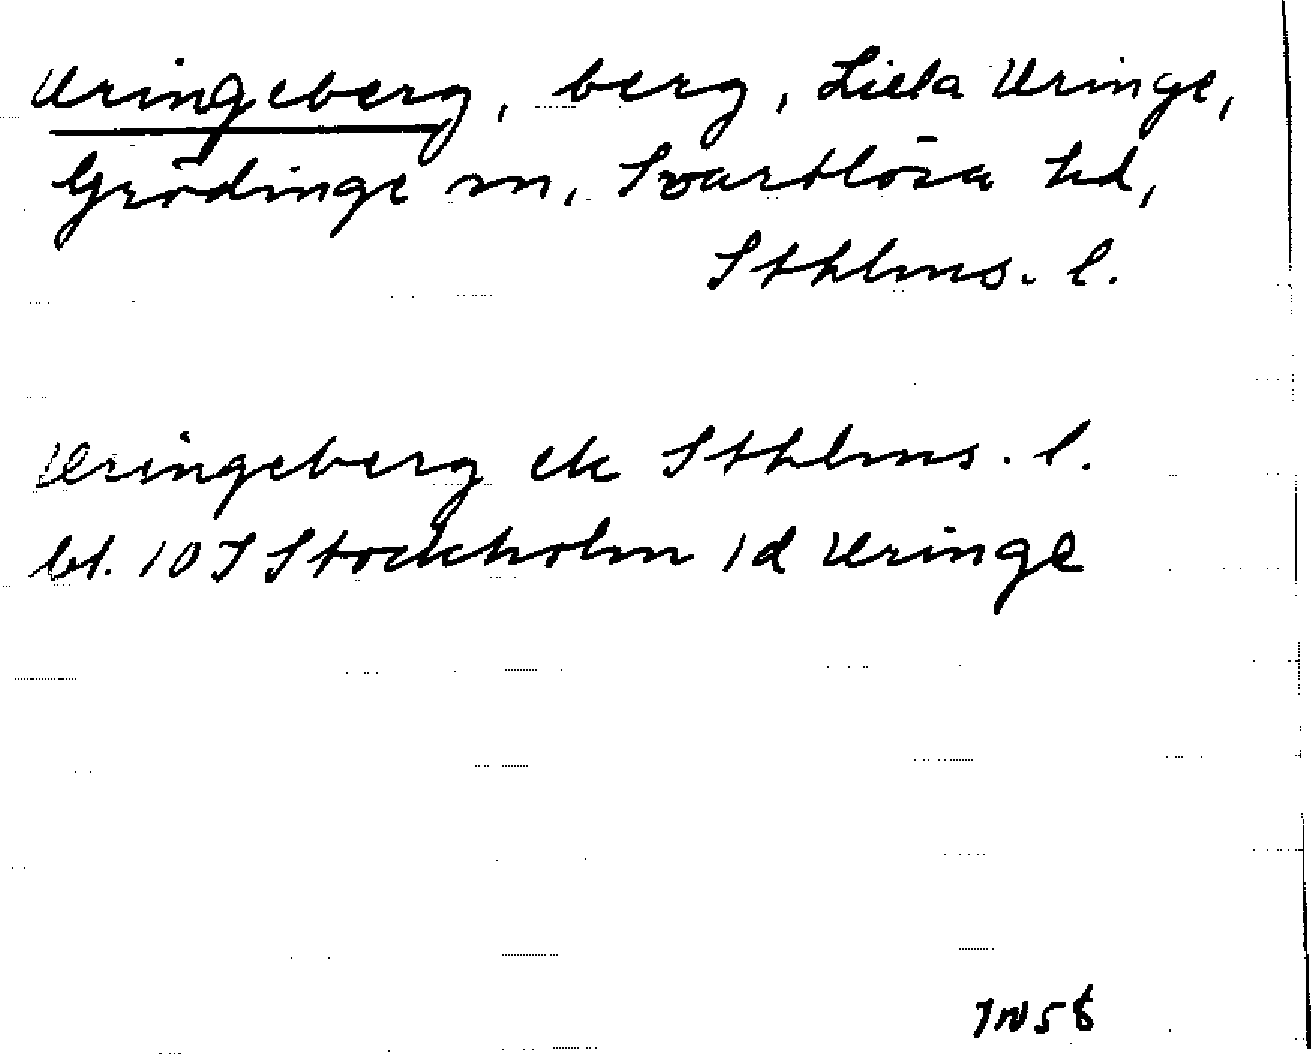 Uringeberg, berg, Lilla Uringe,
Grödinge sn, Svartlösa hd,
Sthlms. l.
Uringeberg ek Sthlms. l.
bl. 10I Stockholm 1d Uringe
58